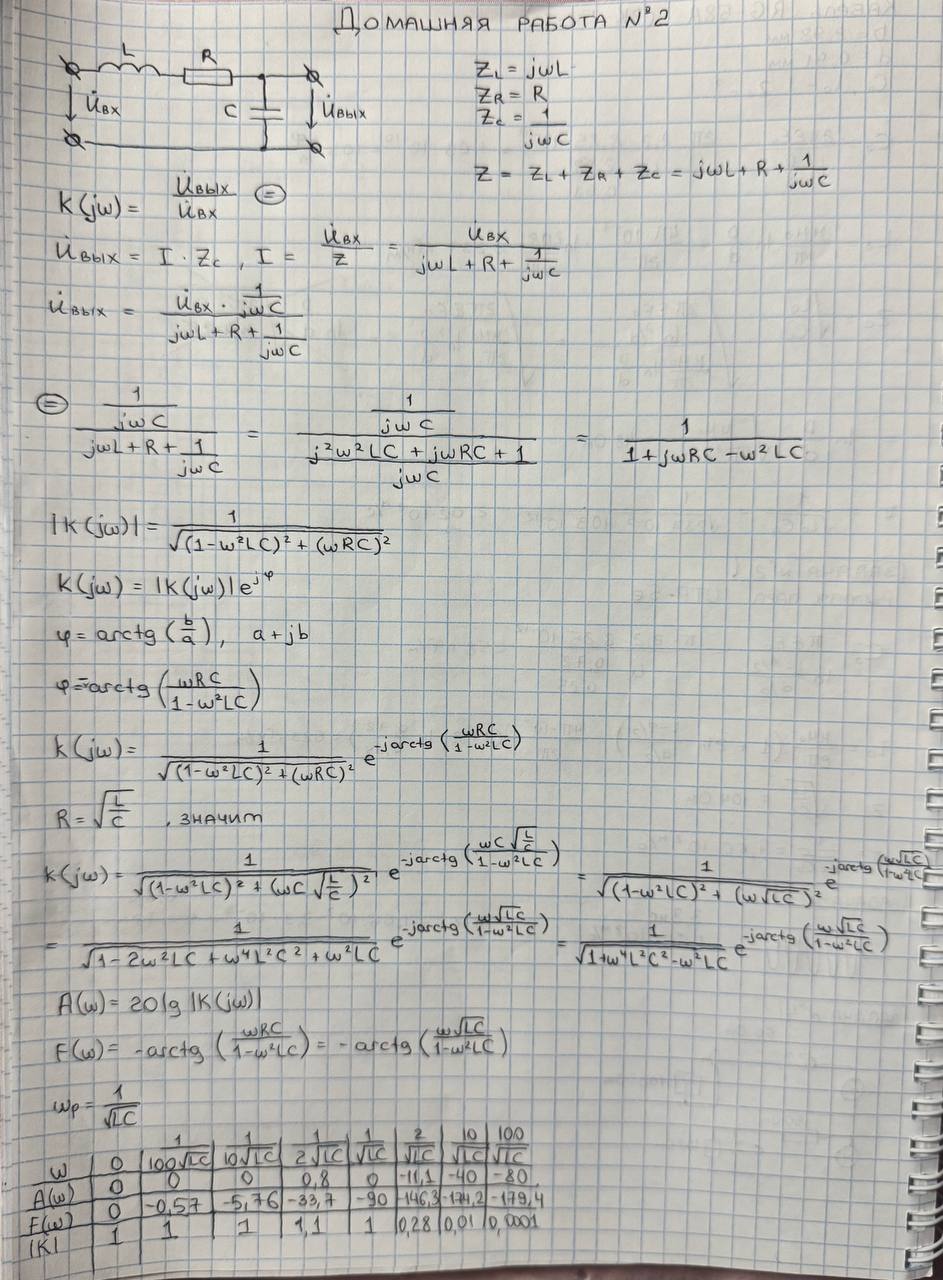 Домашняя работа №2
L R
U̇вх C U̇вых
Z_L = jωL
Z_R = R
Z_c = 1/(jωC)
Z = Z_L + Z_R + Z_c = jωL + R + 1/(jωC)
K(jω) = U̇вых/U̇вх (=)
U̇вых = I · Z_c , I = U̇вх/Z = U̇вх/(jωL + R + 1/(jωC))
U̇вых = (U̇вх · 1/(jωC))/(jωL + R + 1/(jωC))
(=) (1/(jωC))/(jωL + R + 1/(jωC)) = (1/(jωC))/((j²ω²LC + jωRC + 1)/(jωC)) = 1/(1 + jωRC - ω²LC)
|K(jω)| = 1/√((1-ω²LC)² + (ωRC)²)
K(jω) = |K(jω)| e^(jφ)
φ = arctg (b/a), a + jb
φ = -arctg (ωRC/(1-ω²LC))
K(jω) = 1/√((1-ω²LC)² + (ωRC)²) e^(-jarctg(ωRC/(1-ω²LC)))
R = √(L/C) , значит
K(jω) = 1/√((1-ω²LC)² + (ωC√(L/C))²) e^(-jarctg(ωC√(L/C)/(1-ω²LC))) = 1/√((1-ω²LC)² + (ω√LC)²) e^(-jarctg(ω√LC/(1-ω²LC)))
= 1/√(1-2ω²LC + ω⁴L²C² + ω²LC) e^(-jarctg(ω√LC/(1-ω²LC))) = 1/√(1+ω⁴L²C²-ω²LC) e^(-jarctg(ω√LC/(1-ω²LC)))
A(ω) = 20lg |K(jω)|
F(ω) = -arctg (ωRC/(1-ω²LC)) = -arctg (ω√LC/(1-ω²LC))
ωр = 1/√LC
ω | 0 | 1/(100√LC) | 1/(10√LC) | 1/(2√LC) | 1/√LC | 2/√LC | 10/√LC | 100/√LC
A(ω) | 0 | 0 | 0 | 0,8 | 0 | -11,1 | -40 | -80
F(ω) | 0 | -0,57 | -5,76 | -33,7 | -90 | -146,3 | -174,2 | -179,4
|K| | 1 | 1 | 1 | 1,1 | 1 | 0,28 | 0,01 | 0,0001